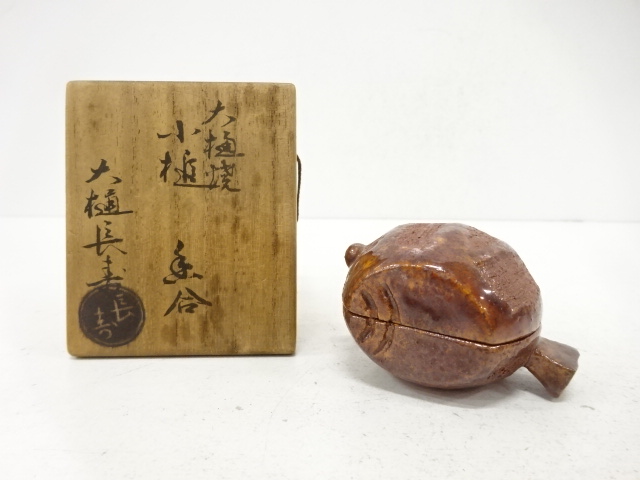 大樋焼
小槌 香合
大樋長寿
長寿